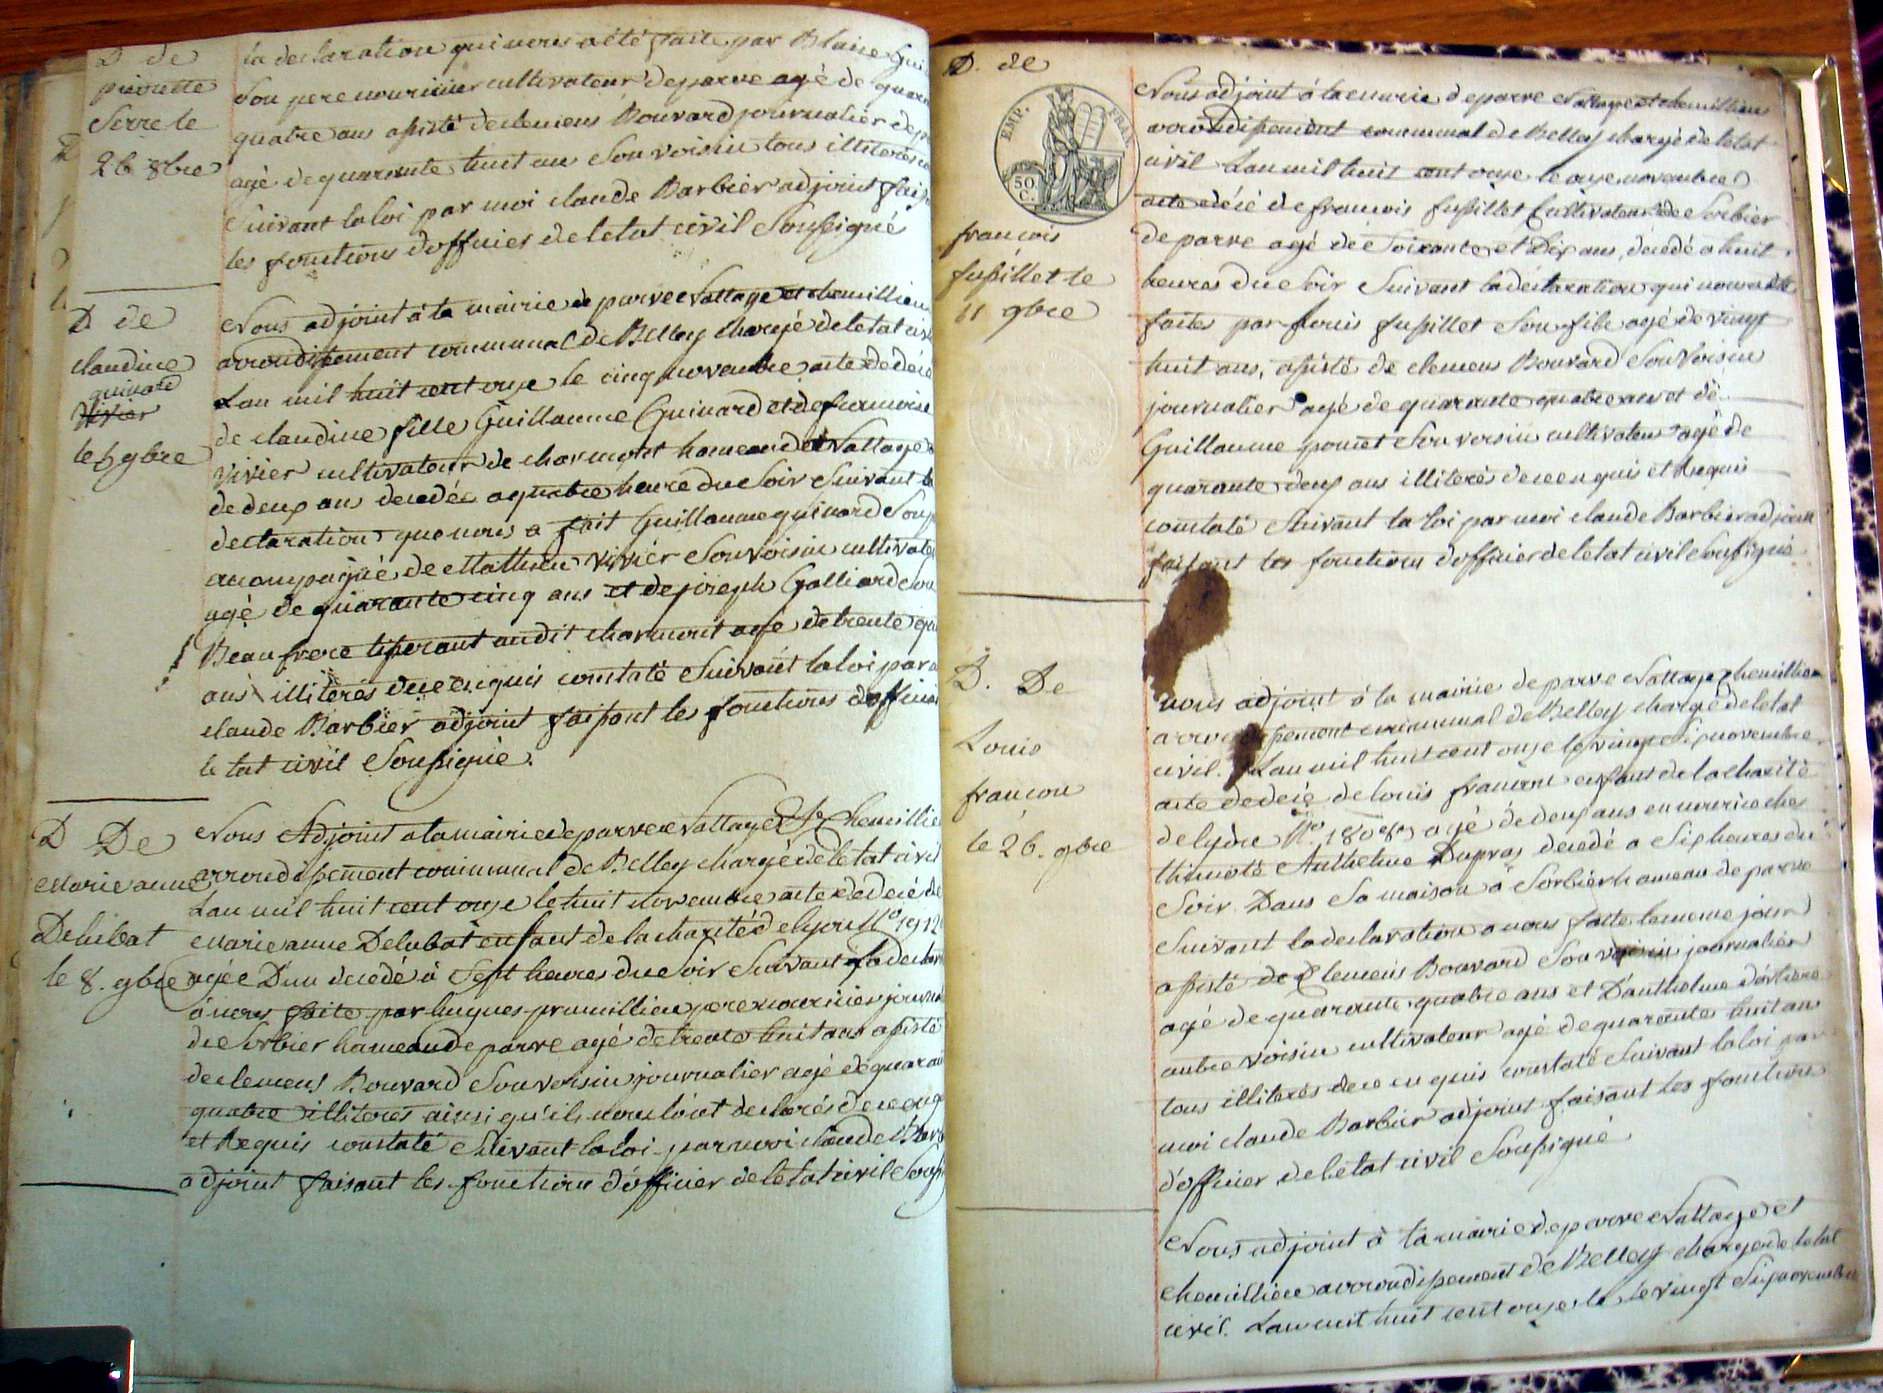 D de
pierrette
Serre le
26 8bre
la declaration qui nous a été faite par Blaise
Son pere nourricier cultivateur de parve agé de
quatre ans assisté de clemens Bouvard journalier de
agé de quarante huit ans Son voisin tous illiterés
Suivant la loi par moi claude Barbier adjoint
les fonctions d'officier de letat civil Soussigné
D de
claudine
guinard
vivier
le 5 9bre
Nous adjoint à la mairie de parve Nattage et chemillieu
arrondissement communal de Belley chargé de letat
Lan mil huit cent onze le cinq novembre acte de
de claudine fille Guillaume Guinard et de francoise
vivier cultivateur de charmont hameau de Nattage
de deux ans decedée a quatre heure du Soir Suivant
declaration que nous a fait Guillaume guinard
acompagné de Mathieu vivier Son voisin
agé de quarante cinq ans et de joseph Galliard Son
Beau frere tisserant audit charmont agé de trente
ans illiterés de ce enquis constaté Suivant la loi par
claude Barbier adjoint faisant les fonctions
letat civil Soussigné.
D De
Marie anne
Delubat
le 8. 9bre
Nous Adjoint a la mairie de parve Nattage Et
arrondissement communal de Belley chargé de letat civil
Lan mil huit cent onze le huit novembre acte de decé de
Marie anne Delubat enfant de la charité de lyon N°
agée Dun decedé à Sept heures du Soir Suivant la
à nous faite par hugues prumillieu pere nourricier
de Sorbier hameau de parve agé de trente huit ans assisté
de clemens Bouvard Son voisin journalier agé de
quatre illiteres ainsi qu'ils nous l'ont declarés de ce
et Requis constaté Suivant la loi par moi claude
adjoint faisant les fonctions d'officier de letat civil
D. de
EMP. FRAN.
50 C.
francois
fussillet le
11 9bre
Nous adjoint à la mairie de parve Nattage et chemillieu
arrondissement communal de Belley chargé de letat
civil Lan mil huit cent onze le onze novembre
acte décé de francois fussillet Cultivateur de Sorbier
de parve agé de Soixante et Dix ans, décédé a huit
heures du Soir Suivant la déclaration qui nous a été
faites par fussillet Son fils agé de vingt
huit ans, assisté de clemens Bouvard Son Voisin
journalier agé de quarante quatre ans et de
Guillaume Son voisin cultivateur agé de
quarante deux ans illiterés de ce enquis et Requis
constaté Suivant la loi par moi claude Barbier adjoint
faisant les fonctions d'officier de letat civil Soussigné
D. De
Louis
francon
le 26. 9bre
nous adjoint à la mairie de parve Nattage chemillieu
communal de Belley chargé de letat
civil. Lan mil huit cent onze le vingt Six novembre
acte de decé de louis francon enfant de la charité
de lyon N° agé de deux ans en nourrice ches
Anthelme Dupras decedé a Six heures du
Soir Dans Sa maison à Sorbier hameau de parve
Suivant la declaration a nous faite le meme jour
assisté de Clemens Bouvard Son voisin journalier
agé de quarante quatre ans et D'anthelme
autre voisin cultivateur agé de quarante huit ans
tous illiterés de ce enquis constaté Suivant la loi par
moi claude Barbier adjoint faisant les fonctions
d'officier de letat civil Soussigné
Nous adjoint à la mairie de parve Nattage et
chemillieu arrondissement de Belley chargé de letat
civil. Lan mil huit cent onze le vingt Six novembre